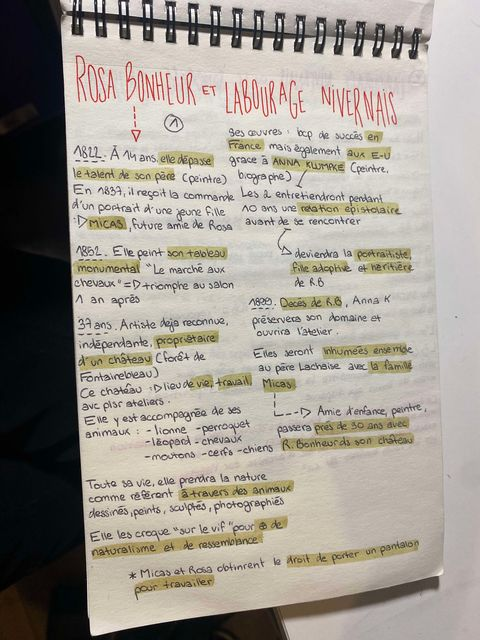 ROSA BONHEUR ET LABOURAGE NIVERNAIS
1
1822. À 14 ans, elle dépasse
le talent de son père (peintre)
En 1837, il reçoit la commande
d'un portrait d'une jeune fille
MICAS, future amie de Rosa
1852. Elle peint son tableau
monumental "Le marché aux
chevaux" => triomphe au salon
1 an après
37 ans. Artiste déjà reconnue,
indépendante, propriétaire
d'un château (forêt de
Fontainebleau)
Ce château : lieu de vie, travail
avc plsr ateliers.
Elle y est accompagnée de ses
animaux : - lionne - perroquet
- léopard - chevaux
- moutons - cerfs - chiens
Ses œuvres : bcp de succès en
France mais également aux E-U
grace à ANNA KLUMPKE (peintre,
biographe)
Les 2 entretiendront pendant
10 ans une relation épistolaire
avant de se rencontrer
deviendra la portraitiste,
fille adoptive et héritière
de R.B
1899. Décès de R.B, Anna K
préservera son domaine et
ouvrira l'atelier.
Elles seront inhumées ensemble
au père Lachaise avec la famille
Micas
Amie d'enfance, peintre,
passera près de 30 ans avec
R. Bonheur ds son château
Toute sa vie, elle prendra la nature
comme référent à travers des animaux
dessinés, peints, sculptés, photographiés
Elle les croque "sur le vif" pour ⊕ de
naturalisme et de ressemblance.
* Micas et Rosa obtinrent le droit de porter un pantalon
pour travailler